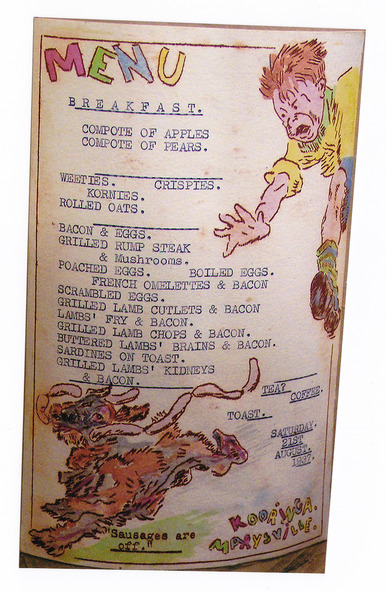 MENU
BREAKFAST.
COMPOTE OF APPLES
COMPOTE OF PEARS.
WEETIES. CRISPIES.
KORNIES.
ROLLED OATS.
BACON & EGGS.
GRILLED RUMP STEAK
& Mushrooms.
POACHED EGGS. BOILED EGGS.
FRENCH OMELETTES & BACON
SCRAMBLED EGGS.
GRILLED LAMB CUTLETS & BACON
LAMBS' FRY & BACON.
GRILLED LAMB CHOPS & BACON.
BUTTERED LAMBS' BRAINS & BACON.
SARDINES ON TOAST.
GRILLED LAMBS' KIDNEYS
& BACON.
TEA? COFFEE.
TOAST.
SATURDAY.
21ST
AUGUST.
1937.
"Sausages are
off."
MARYSVILLE.